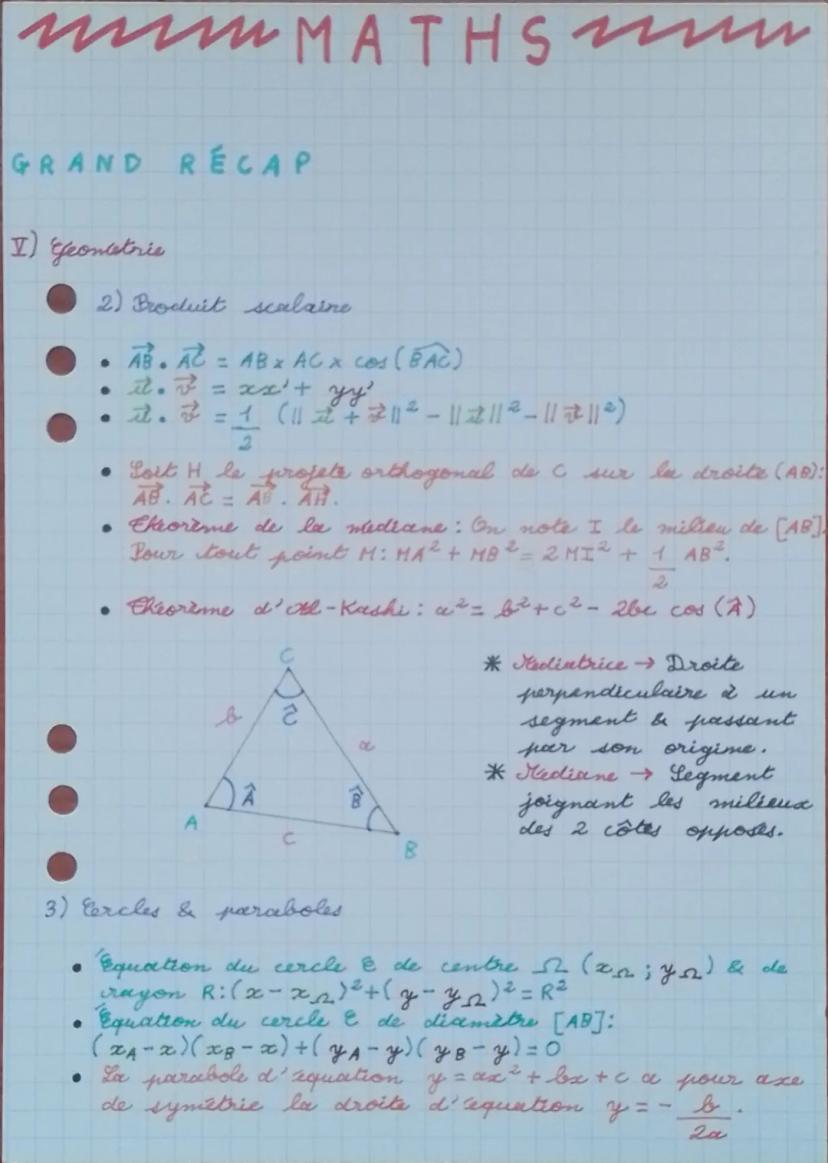 MATHS
GRAND RÉCAP
V) Géométrie
2) Produit scalaire
• AB⃗ . AC⃗ = AB x AC x cos (BAC)
• u⃗ . v⃗ = xx' + yy'
• u⃗ . v⃗ = 1/2 (|| u⃗ + v⃗ ||² - || u⃗ ||² - || v⃗ ||²)
• Soit H le projeté orthogonal de C sur la droite (AB):
AB⃗ . AC⃗ = AB⃗ . AH⃗.
• Théorème de la médiane : On note I le milieu de [AB].
Pour tout point M: MA² + MB² = 2 MI² + 1/2 AB².
• Théorème d'Al-Kashi : a² = b² + c² - 2bc cos (Â)
C
b
Ĉ
a
Â
B̂
A
C
B
* Médiatrice → Droite
perpendiculaire à un
segment & passant
par son origine.
* Médiane → Segment
joignant les milieux
des 2 côtés opposés.
3) Cercles & paraboles
• Équation du cercle C de centre Ω (xΩ ; yΩ) & de
rayon R: (x - xΩ)² + (y - yΩ)² = R²
• Équation du cercle C de diamètre [AB]:
(xA - x)(xB - x) + (yA - y)(yB - y) = 0
• La parabole d'équation y = ax² + bx + c a pour axe
de symétrie la droite d'équation y = - b/2a .